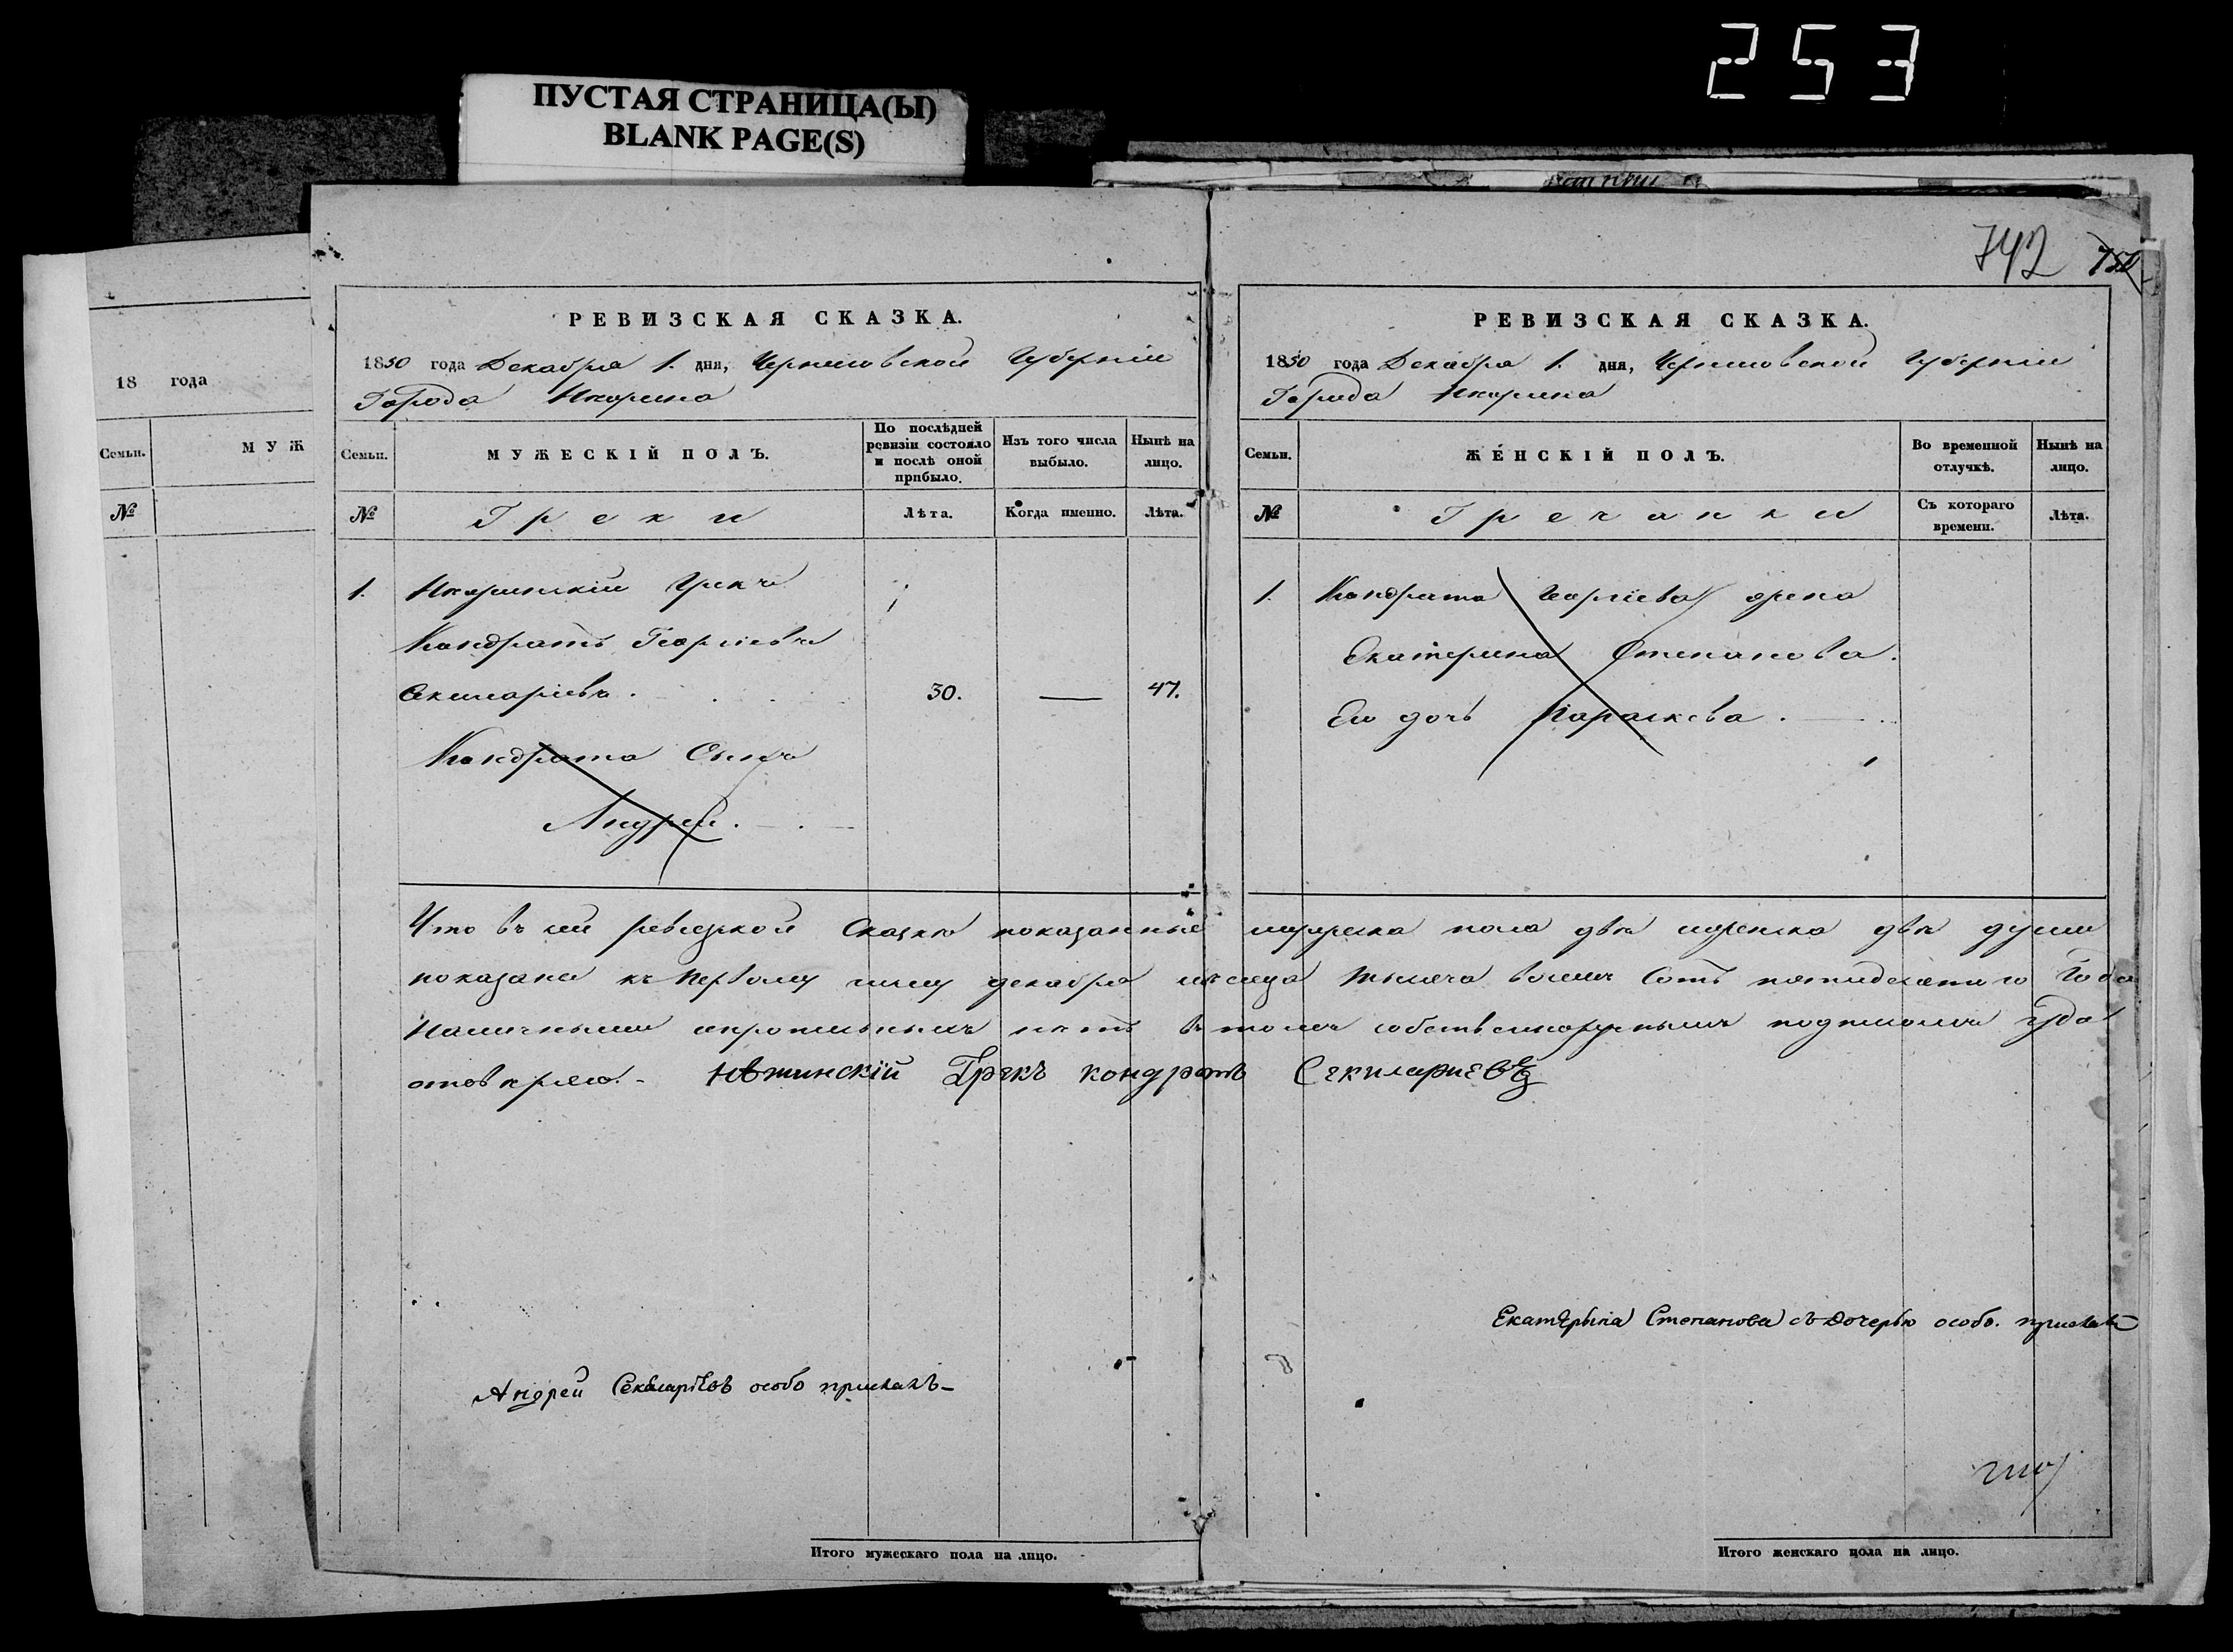 253
ПУСТАЯ СТРАНИЦА(Ы)
BLANK PAGE(S)
18 года
Семьи.
МУЖ
№
РЕВИЗСКАЯ СКАЗКА.
1850 года Декабря 1. дня, Черниговской Губерніи
Города Нѣжина
Семьи.
МУЖЕСКІЙ ПОЛЪ.
По послѣдней ревизіи состояло и послѣ оной прибыло.
Изъ того числа выбыло.
Нынѣ на лицо.
№
Греки
Лѣта.
Когда именно.
Лѣта.
1. Нѣжинскій Грекъ
Кондратъ Георгіевъ
Секиларіевъ . 30. — 47.
Кондрата Сынъ
Андрей.
742 750
РЕВИЗСКАЯ СКАЗКА.
1850 года Декабря 1. дня, Черниговской Губерніи
Города Нѣжина
Семьи.
ЖЕНСКІЙ ПОЛЪ.
Во временной отлучкѣ.
Нынѣ на лицо.
№
Гречанки
Съ котораго времени.
Лѣта.
1. Кондрата Георгіева жена
Екатерина Степанова.
Ею дочь Параскева .
Что въ сей ревизской Сказкѣ показанные мужеска пола двѣ женска двѣ души
показаны къ Первому числу декабря мѣсяца тысяча восемь Сотъ пятидесятаго Года
Наличными а нѣтъ въ томъ собственноручнымъ подписомъ
Нѣжинскій Грекъ кондратъ Секилариевъ
Екатерына Степанова съ дочерью особо.
Андрей Секиларіевъ особо
Итого мужескаго пола на лицо.
Итого женскаго пола на лицо.